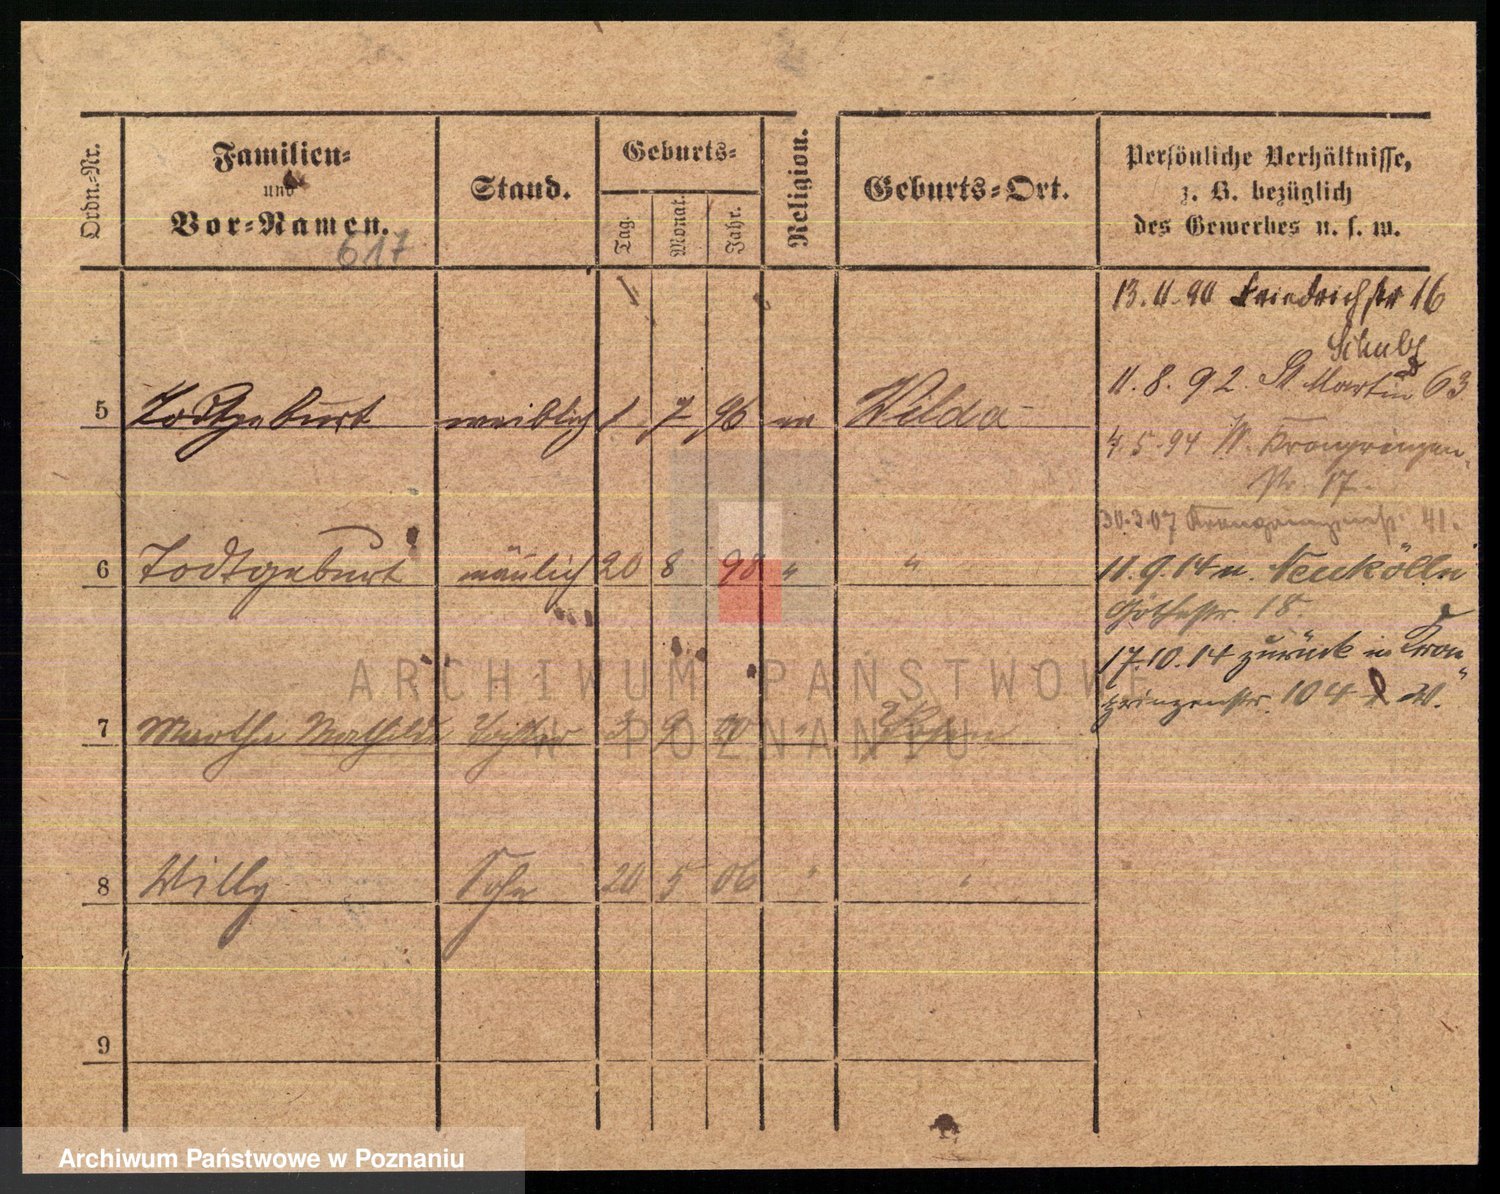 Ordn.-Nr.
Familien-
und
Vor-Namen.
617
Stand.
Geburts-
Tag.
Monat.
Jahr.
Religion.
Geburts-Ort.
Persönliche Verhältnisse,
z. B. bezüglich
des Gewerbes u. s. w.
13. 11. 90 Friedrichstr 16
Schulz
11. 8. 92. St Martin 63
5 Todtgeburt weiblich 1 7 96 ev Wilda
4. 5. 94 W. Kronprinzen-
str. 17.
30. 3. 07 Kronprinzenstr. 41.
6 Todtgeburt mänlich 20 8 98 " "
11. 9. 14 n. Neukölln
Göthestr. 18.
17. 10. 14 zurück in Kron
prinzenstr. 104 W.
7 Martha Mathilde Tochter 9 " Posen
8 Willy Sohn 20 5 06 " "
9
ARCHIWUM PAŃSTWOWE
W POZNANIU
Archiwum Państwowe w Poznaniu